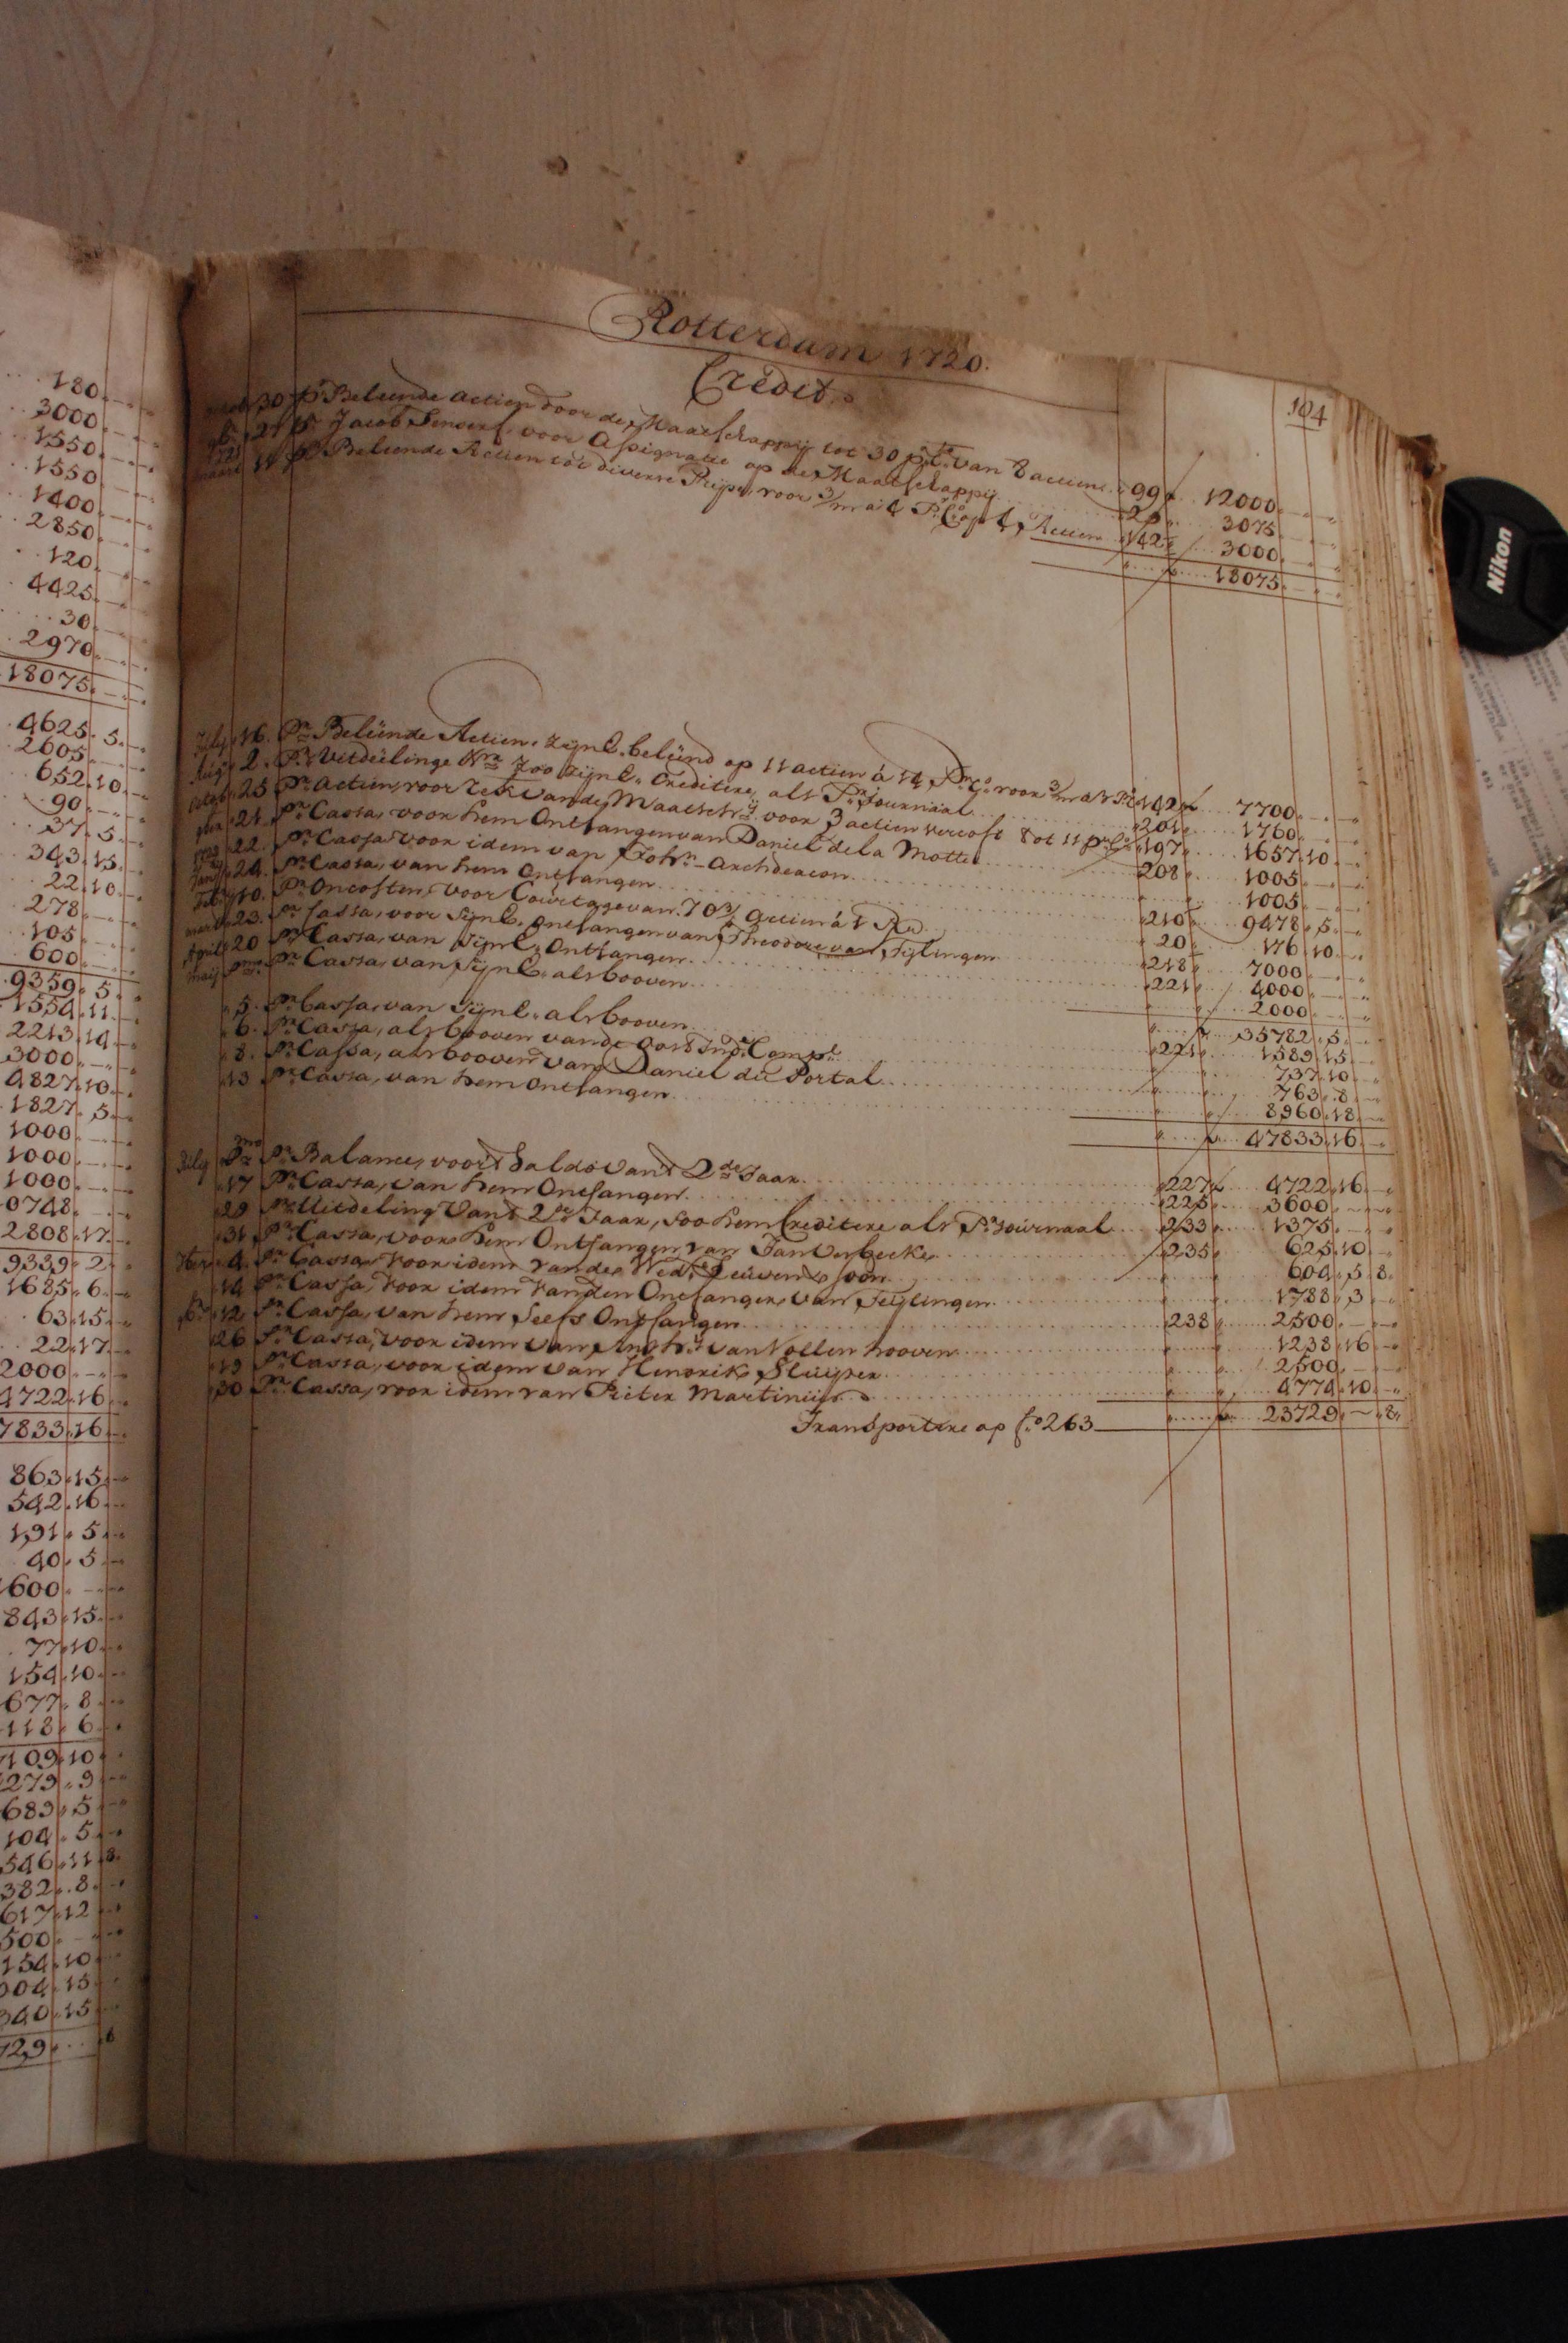 180
3000
1550
1550
1400
2850
120
4425
30
2970
18075
4625. 5.
2605
652. 10.
90
37. 5.
343. 15.
22. 10.
278
105
600
9359. 5.
1554. 11.
2213. 14.
3000
4827. 10.
1827. 5.
1000
1000
1000
0748
2808. 17.
9339. 2.
1685. 6.
63. 15.
22. 17.
2000
4722. 16.
7833. 16.
863. 15.
542. 16.
191. 5.
40. 5.
600
843. 15.
77. 10.
154. 10.
677. 8.
118. 6.
7109. 10.
279. 9.
683. 5.
104. 5.
546. 11. 8.
382. 8.
617. 12.
500
154. 10.
004. 15.
340. 15.
729. 8
Rotterdam 1720.
Credit.
104
30 Pr Beleende actien door de Maatschappij tot 30 pCto van 8 actien 99 12000
21 Pr Jacob Senserf voor Assignatie op de Maatschappij 3075
maart 11 Pr Beleende Actien tot diverse Prijse voor 3/m a 1/4 Pr Co op 4 Actien 142 3000
18075
July 16. Pr Beleende Actien, zijnl. beleend op 11 actien á 14 Pr Co voor 3/m 142 7700
Aug 2. Pr Uitdeelinge Nra 700 zijnl. Crediteere, als Pr Journaal 201 1760
25 Pr actien voor Rek vande Maatschij voor 3 actien vercoft 8 tot 11 pr Co 197 1657. 10
21. Pr Cassa, voor hem Ontfangen van Daniel de la Motte 208 1005
22. Pr Cassa voor idem van John Archdeacon 1005
Jan 24. Pr Cassa, van hem Ontfangen 210 9478. 5
10. Pr Oncosten, voor Courtage van 70 3/4 actien á 1 Rd 20 176. 10
maert 23. Pr Cassa, voor Zijnl. ontfangen van Theodore van Tijlingen 218 7000
April 20 Pr Cassa, van Zijnl. Ontfangen 221 4000
Maij pmo Pr Cassa, van Zijnl. als booven 2000
35782. 5
5. Pr Cassa, van Zijnl. als booven 221 1589. 15
6. Pr Cassa, als booven vande Oost Ind. Comp. 737. 10
8. Pr Cassa, als booven van Daniel du Portal 763. 8
13 Pr Cassa, van hem Ontfangen 8960. 18
47833. 16
July Pmo Pr Balance, voor 't Saldo van 't 2de Jaar 227 4722. 16
17 Pr Cassa, van hem Ontfangen 225 3600
29 Pr Uitdeling van 't 2de Jaar, soo hem Creditere als Pr Journaal 233 1375
31 Pr Cassa, voor hem Ontfangen van Jan Verbeeke 235 625. 10
4. Pr Cassa, voor idem van de Wed. Leuven & Soon 604. 5. 8
14 Pr Cassa, voor idem van den Ontfanger van Teijlingen 1788. 3
12 Pr Cassa, van hem selfs Ontfangen 238 2500
26 Pr Cassa, voor idem van Anthy van Vollenhooven 1238. 16
19 Pr Cassa, voor idem van Hendrik Sluijper 2500
30 Pr Cassa, voor idem van Pieter Martinius 4774. 10
Transportere op fo 263 23729 8
Nikon